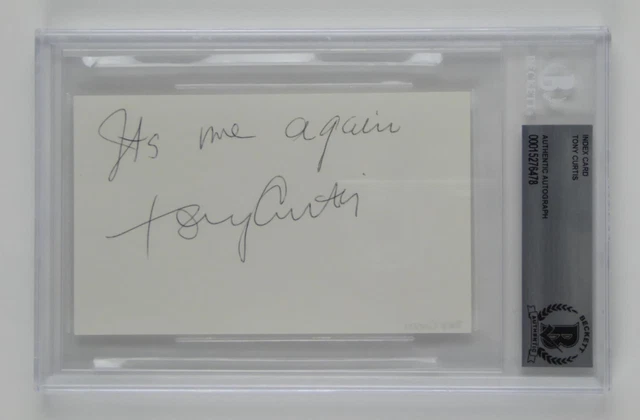 Its me again
Tony Curtis
INDEX CARD
TONY CURTIS
AUTHENTIC AUTOGRAPH
00015276478
BECKETT
AUTHENTIC
BECKETT